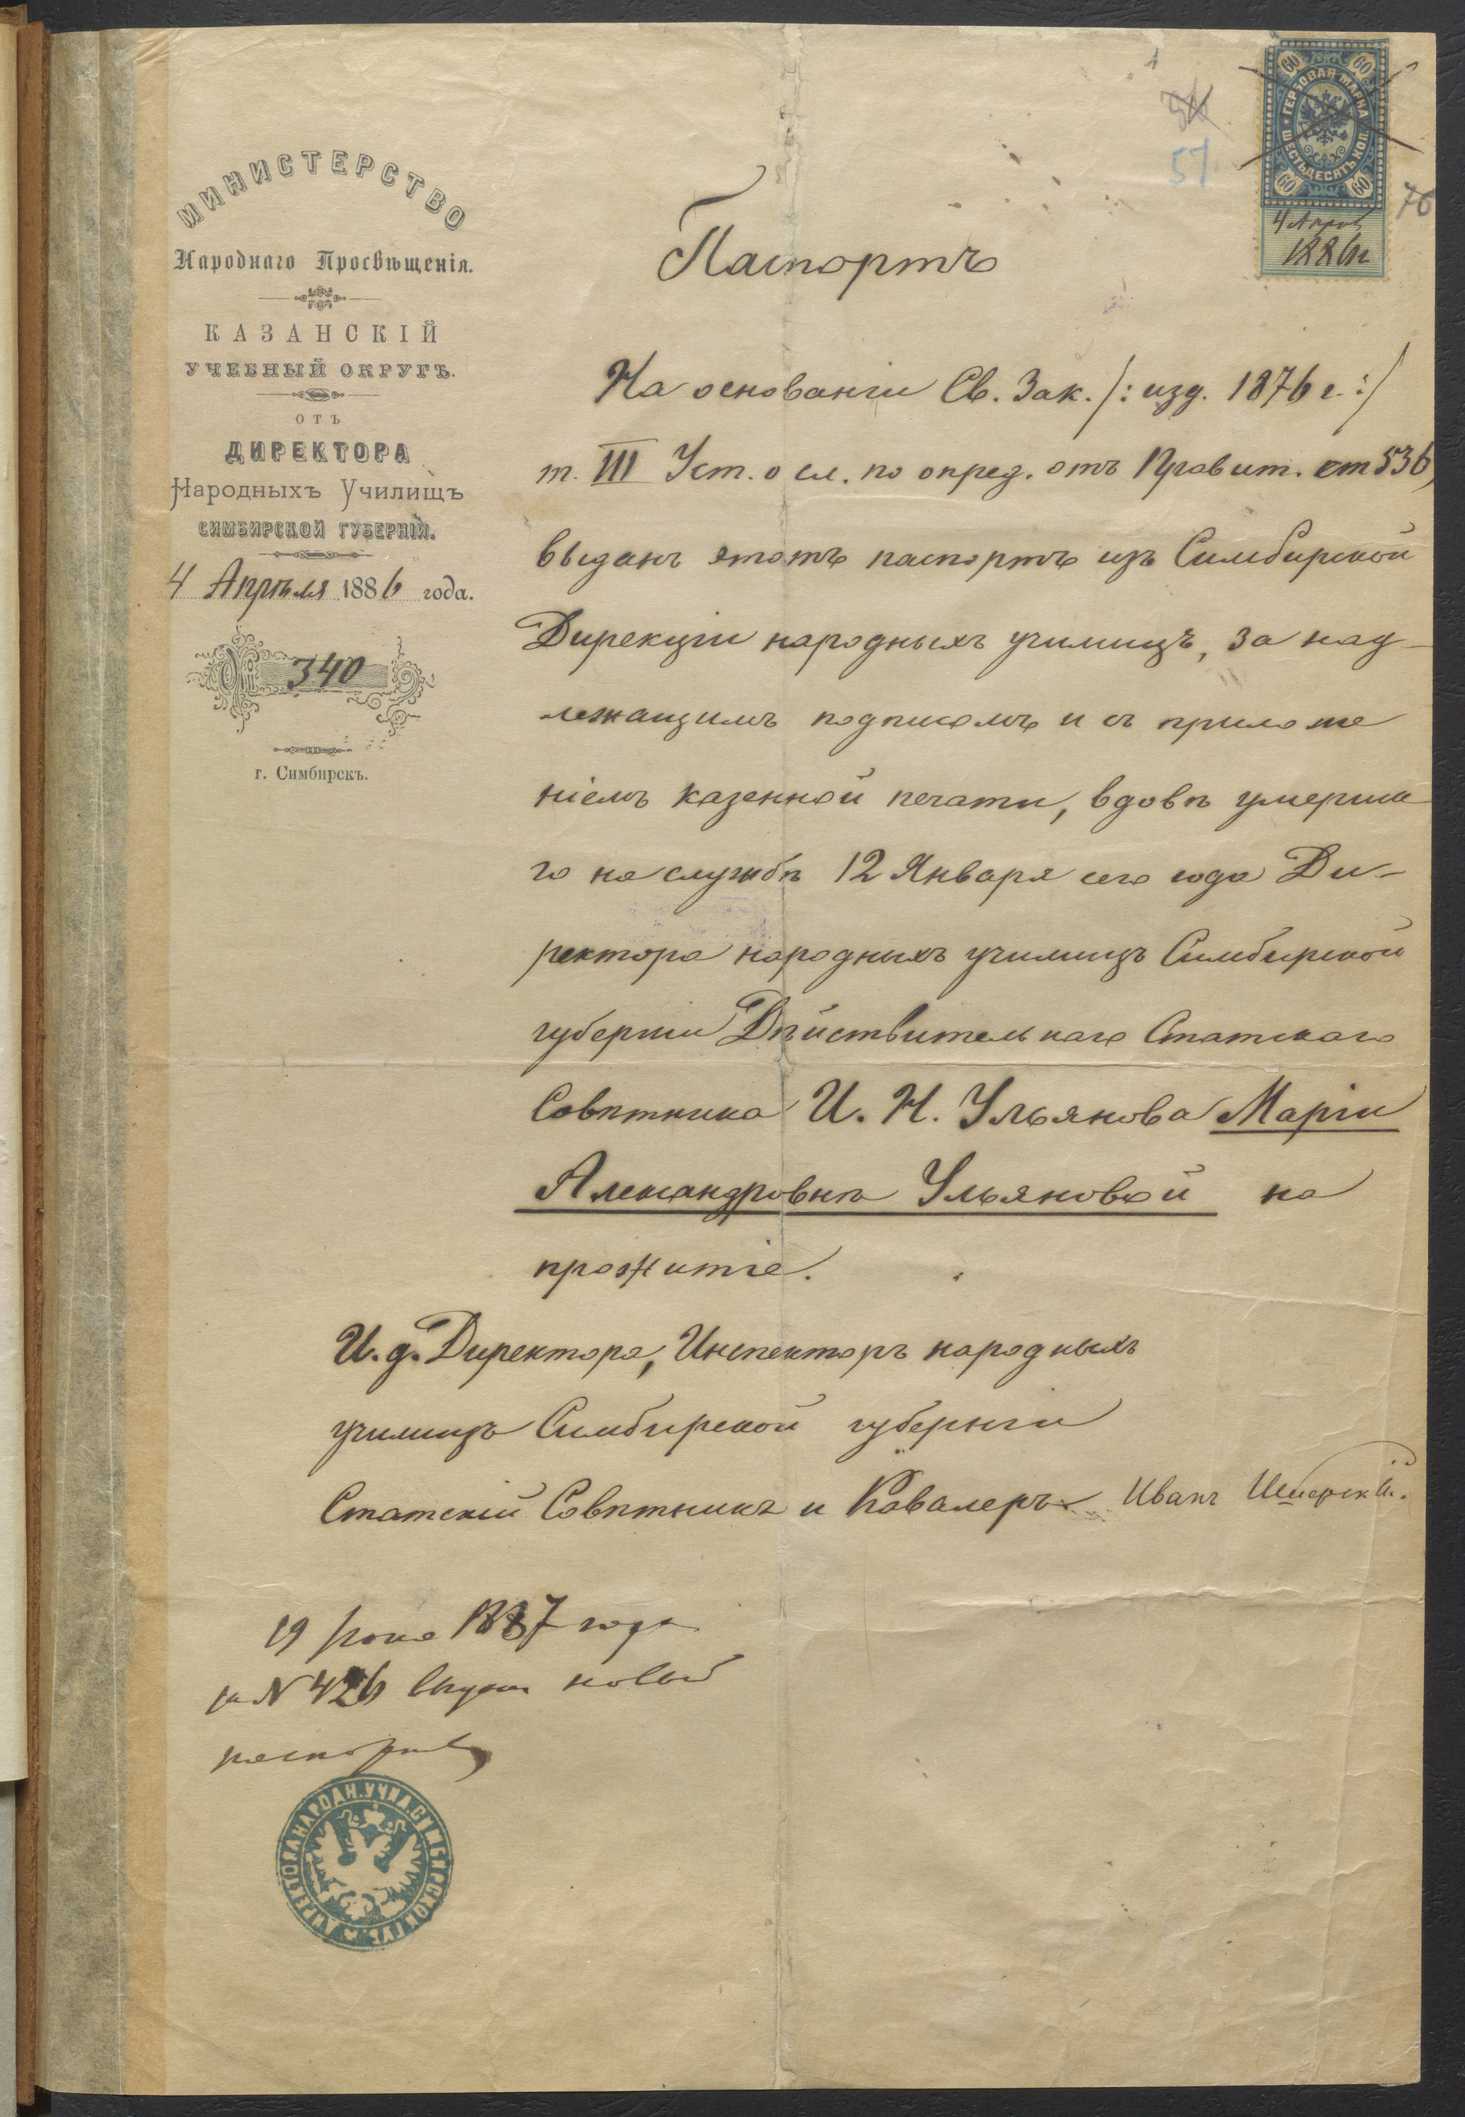 МИНИСТЕРСТВО
Народнаго Просвѣщенія.
КАЗАНСКІЙ
УЧЕБНЫЙ ОКРУГЪ.
ОТЪ
ДИРЕКТОРА
Народныхъ Училищъ
СИМБИРСКОЙ ГУБЕРНІИ.
4 Апрѣля 1886 года.
№ 340
г. Симбирскъ.
51
76
60 60
ГЕРБОВАЯ МАРКА
ШЕСТЬДЕСЯТЪ КОП.
60 60
4 Апрѣ
1886 г
Паспортъ
На основаніи Св. Зак. /: изд. 1876 г. :/
т. III Уст. о сл. по опред. отъ Правит. ст 536,
выданъ этотъ паспортъ изъ Симбирской
Дирекціи народныхъ училищъ, за над-
лежащимъ подписомъ и съ приложе
ніемъ казенной печати, вдовѣ умерша-
го на службѣ 12 Января сего года Ди-
ректора народныхъ училищъ Симбирской
губерніи Дѣйствительнаго Статскаго
Совѣтника И. Н. Ульянова Маріи
Александровнѣ Ульяновой на
прожитіе.
И. д. Директора, Инспекторъ народныхъ
училищъ Симбирской губерніи
Статскій Совѣтникъ и Кавалеръ Иванъ
19 1887 года
за № 426 выданъ новый
паспортъ
ДИРЕКТОРА НАРОДН. УЧИЛ. СИМБИРСКОЙ ГУБ.